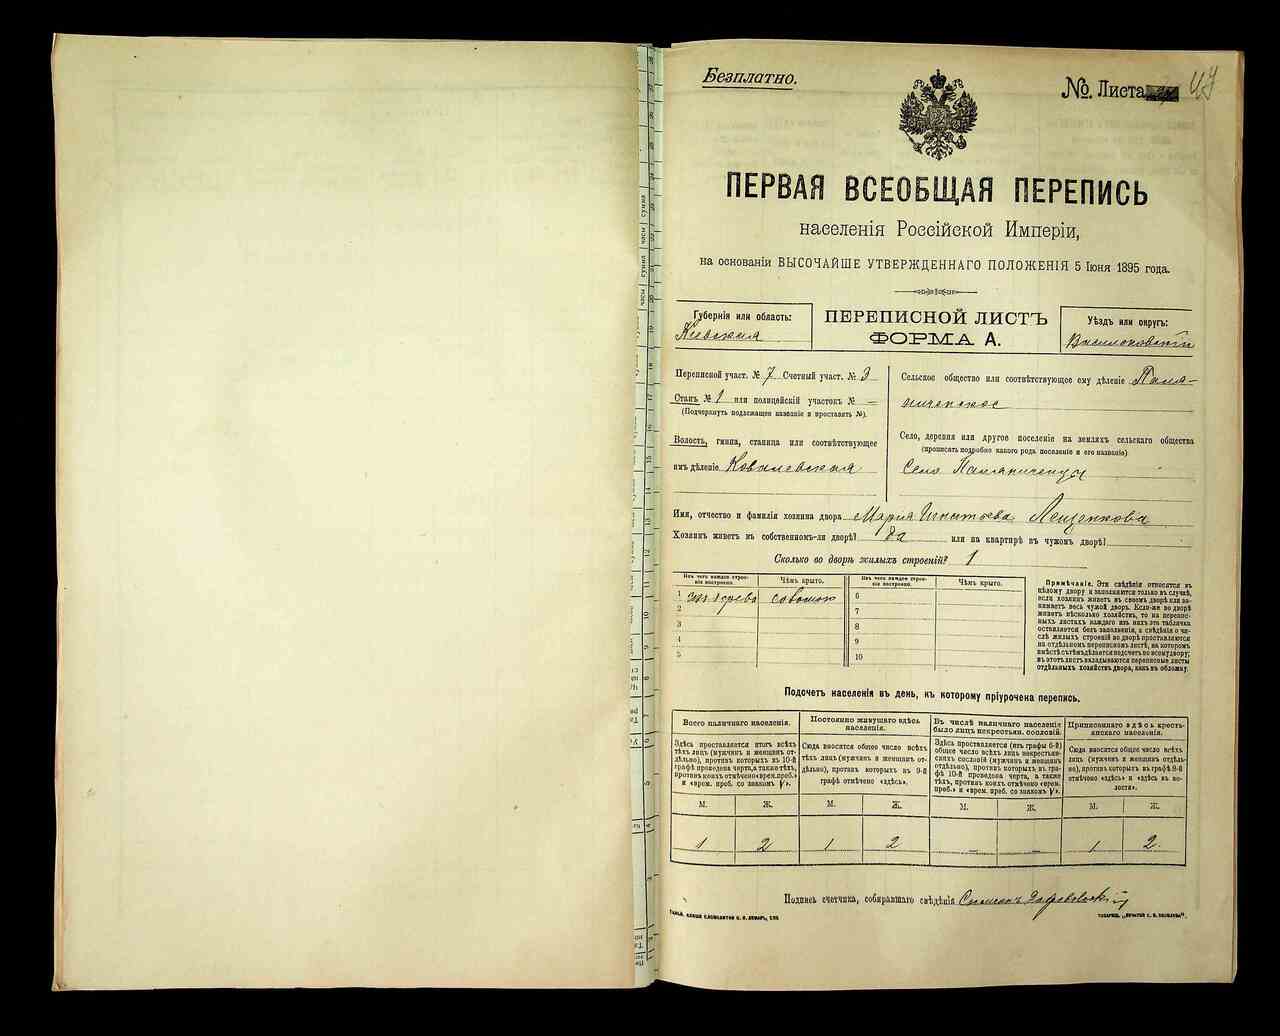 Безплатно.
№ Листа 47
ПЕРВАЯ ВСЕОБЩАЯ ПЕРЕПИСЬ
населенія Россійской Имперіи,
на основаніи ВЫСОЧАЙШЕ УТВЕРЖДЕННАГО ПОЛОЖЕНІЯ 5 Іюня 1895 года.
Губернія или область:
Кіевская
ПЕРЕПИСНОЙ ЛИСТЪ
ФОРМА А.
Уѣздъ или округъ:
Васильковскій
Переписной участ. № 7 Счетный участ. № 3
Станъ № 1 или полицейскій участокъ № —
(Подчеркнуть подлежащее названіе и проставить №).
Волость, гмина, станица или соотвѣтствующее
имъ дѣленіе Ковалевская
Сельское общество или соотвѣтствующее ему дѣленіе
Село, деревня или другое поселеніе на земляхъ сельскаго общества
(прописать подробно какого рода поселеніе и его названіе).
Село
Имя, отчество и фамилія хозяина двора Марія Игнатьева Лещенкова
Хозяинъ живетъ въ собственномъ-ли дворѣ? да или на квартирѣ въ чужомъ дворѣ?
Сколько во дворѣ жилыхъ строеній? 1
Изъ чего каждое строе-
ніе построено.
Чѣмъ крыто.
Изъ чего каждое строе-
ніе построено.
Чѣмъ крыто.
1 изъ дерева соломою 6
2 7
3 8
4 9
5 10
Примѣчаніе. Эти свѣдѣнія относятся къ
цѣлому двору и заполняются только въ случаѣ,
если хозяинъ живетъ въ своемъ дворѣ или за-
нимаетъ весь чужой дворъ. Если-же во дворѣ
живетъ нѣсколько хозяйствъ, то на перепис-
ныхъ листахъ каждаго изъ нихъ эта табличка
оставляется безъ заполненія, а свѣдѣнія о чи-
слѣ жилыхъ строеній во дворѣ проставляются
на отдѣльномъ переписномъ листѣ, на которомъ
вмѣстѣ съ тѣмъ дѣлается подсчетъ по всему двору;
въ этотъ листъ вкладываются переписные листы
отдѣльныхъ хозяйствъ двора, какъ въ обложку.
Подсчетъ населенія въ день, къ которому пріурочена перепись.
Всего наличнаго населенія.
Здѣсь проставляется итогъ всѣхъ
тѣхъ лицъ (мужчинъ и женщинъ от-
дѣльно), противъ которыхъ въ 10-й
графѣ проведена черта, а также тѣхъ,
противъ коихъ отмѣчено «врем. преб.»
и «врем. преб. со знакомъ V».
Постоянно живущаго здѣсь
населенія.
Сюда вносится общее число всѣхъ
тѣхъ лицъ (мужчинъ и женщинъ от-
дѣльно), противъ которыхъ въ 9-й
графѣ отмѣчено «здѣсь».
Въ числѣ наличнаго населенія
было лицъ некрестьян. сословій.
Здѣсь проставляется (изъ графы 6-й)
общее число всѣхъ лицъ некрестьян-
скихъ сословій (мужчинъ и женщинъ
отдѣльно), противъ которыхъ въ гра-
фѣ 10-й проведена черта, а также
тѣхъ, противъ коихъ отмѣчено «врем.
преб.» и «врем. преб. со знакомъ V».
Приписаннаго здѣсь кресть-
янскаго населенія.
Сюда вносится общее число всѣхъ
лицъ (мужчинъ и женщинъ отдѣль-
но), противъ которыхъ въ графѣ 8-й
отмѣчено «здѣсь» и «здѣсь въ во-
лости».
М. Ж. М. Ж. М. Ж. М. Ж.
1 2 1 2 — — 1 2
Подпись счетчика, собиравшаго свѣдѣнія